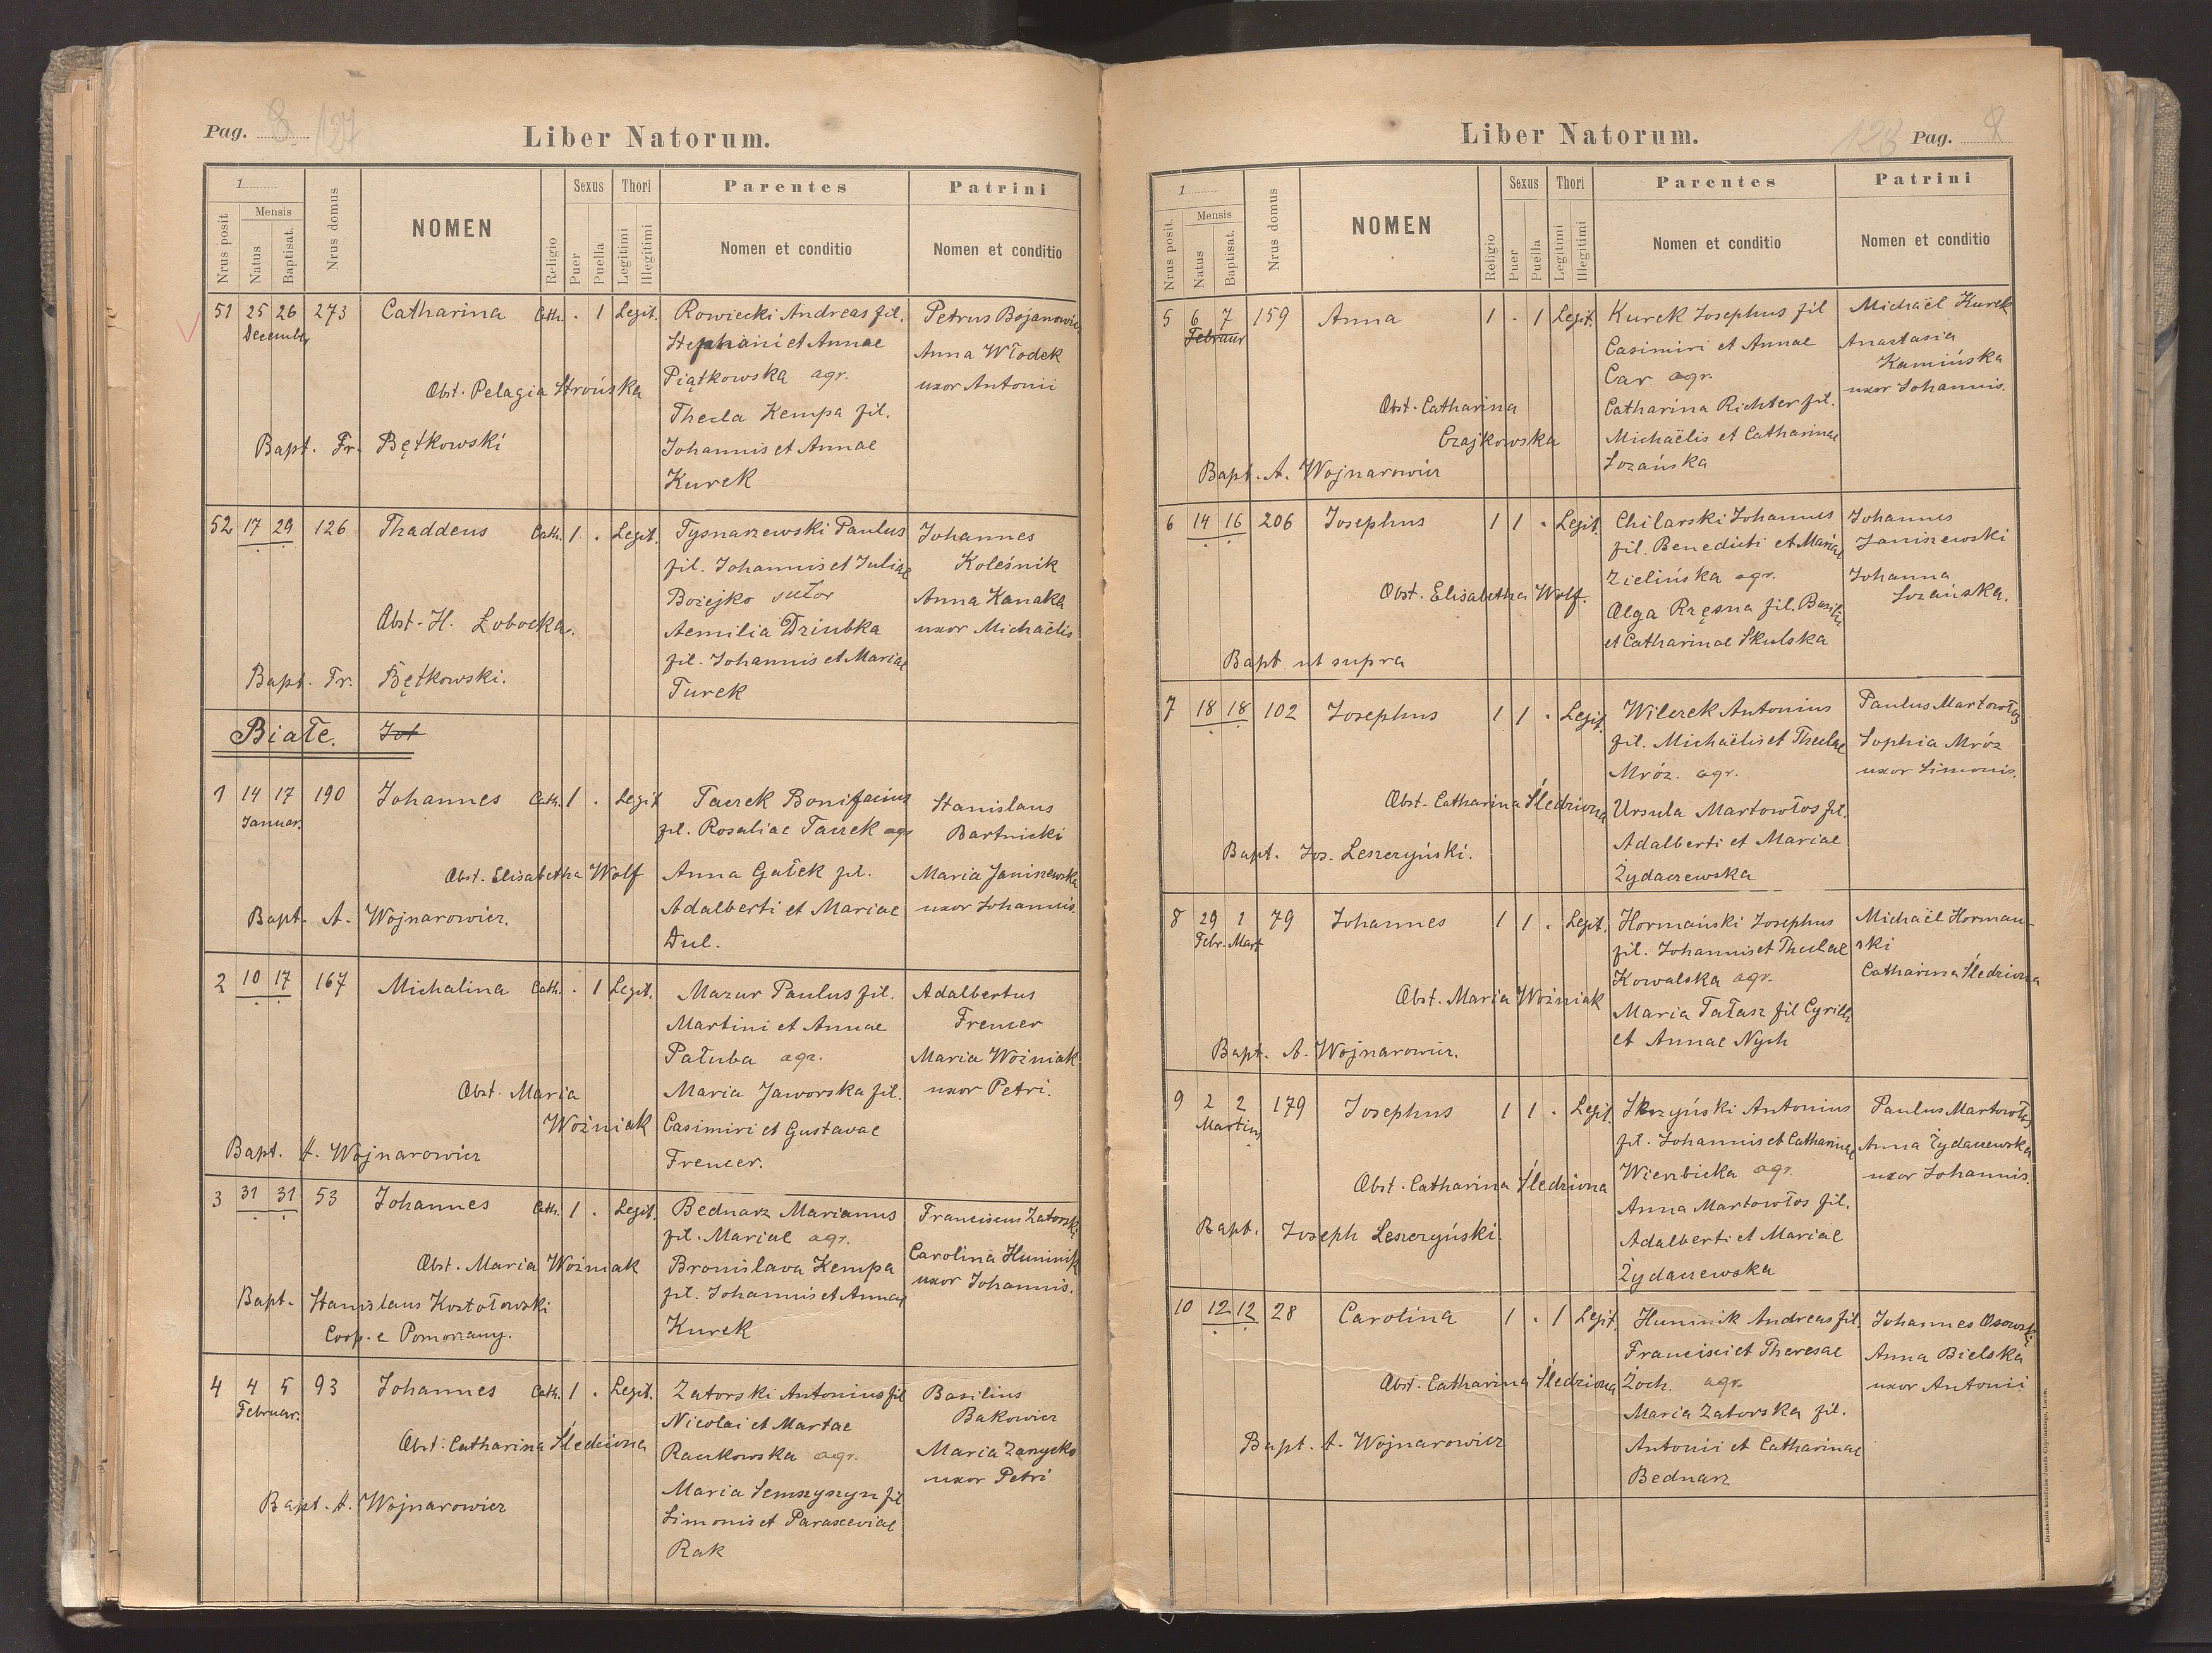 Pag. 8 127
Liber Natorum.
1
Nrus posit
Mensis
Natus
Baptisat.
Nrus domus
NOMEN
Religio
Sexus
Puer
Puella
Thori
Legitimi
Illegitimi
Parentes
Nomen et conditio
Patrini
Nomen et conditio
51 25 26 273 Catharina Cath. . 1 Legit.
December
Obst. Pelagia Strońska
Bapt. Fr. Bętkowski
Rowiecki Andreas fil.
Stephani et Annae
Piątkowska agr.
Thecla Kempa fil.
Johannis et Annae
Kurek
Petrus Bojanowicz
Anna Włodek
uxor Antonii
52 17 29 126 Thaddeus Cath. 1 . Legit.
Obst. H. Łobocka.
Bapt. Fr. Bętkowski.
Tysnarzewski Paulus
fil. Johannis et Juliae
Bożejko sutor
Aemilia Dziubka
fil. Johannis et Mariae
Turek
Johannes
Koleśnik
Anna Kanaka
uxor Michaëlis
Białe. Jot
1 14 17 190 Johannes Cath. 1 . Legit
Januar.
Obst. Elisabetha Wolf
Bapt. A. Wojnarowicz.
Taczek Bonifacius
fil. Rosaliae Taczek agr
Anna Gałek fil.
Adalberti et Mariae
Dul.
Stanislaus
Bartnicki
Maria Janiszewska
uxor Johannis.
2 10 17 167 Michalina Cath. . 1 Legit.
Obst. Maria
Woźniak
Bapt. A. Wojnarowicz
Mazur Paulus fil.
Martini et Annae
Pałuba agr.
Maria Jaworska fil.
Casimiri et Gustavae
Frencer.
Adalbertus
Frencer
Maria Woźniak
uxor Petri.
3 31 31 53 Johannes Cath. 1 . Legit.
Obst. Maria Woźniak
Bapt. Stanislaus Kostołowski
Coop. e Pomorzany.
Bednarz Marianus
fil. Mariae agr.
Bronislava Kempa
fil. Johannis et Annae
Kurek
Franciscus Zatorski
Carolina Huminik
uxor Johannis.
4 4 5 93 Johannes Cath. 1 . Legit.
Februar.
Obst. Catharina Śledziona
Bapt. A. Wojnarowicz
Zatorski Antonius fil
Nicolai et Martae
Raczkowska agr.
Maria Semszyszyn fil
Simonis et Parasceviae
Rak
Basilius
Bakowicz
Maria Zanycko
uxor Petri
Liber Natorum.
128 Pag. 8
1
Nrus posit.
Mensis
Natus
Baptisat.
Nrus domus
NOMEN
Religio
Sexus
Puer
Puella
Thori
Legitimi
Illegitimi
Parentes
Nomen et conditio
Patrini
Nomen et conditio
5 6 7 159 Anna 1 . 1 Legit.
Februar
Obst. Catharina
Czajkowska
Bapt. A. Wojnarowicz
Kurek Josephus fil
Casimiri et Annae
Car agr.
Catharina Richter fil.
Michaëlis et Catharinae
Łozańska
Michaël Kurek
Anastasia
Kamińska
uxor Johannis.
6 14 16 206 Josephus 1 1 . Legit.
Obst. Elisabetha Wolf.
Bapt ut supra
Chilarski Johannes
fil. Benedicti et Mariae
Zielińska agr.
Olga Rzęsna fil. Basilii
et Catharinae Skulska
Johannes
Janiszewski
Johanna
Łozańska.
7 18 18 102 Josephus 1 1 . Legit.
Obst. Catharina Śledziona
Bapt. Jos. Leszczyński.
Wilczek Antonius
fil. Michaëlis et Theclae
Mróz. agr.
Ursula Martowłos fil.
Adalberti et Mariae
Żydaczewska
Paulus Martowłos
Sophia Mróz
uxor Simonis.
8 29 1 79 Johannes 1 1 . Legit.
Febr. Mart
Obst. Maria Woźniak
Bapt. A. Wojnarowicz.
Hormański Josephus
fil. Johannis et Theclae
Kowalska agr.
Maria Tałasz fil Cyrilli
et Annae Nych
Michaël Horman-
ski
Catharina Śledziona
9 2 2 179 Josephus 1 1 . Legit.
Martius
Obst. Catharina Śledziona
Bapt. Joseph Leszczyński.
Skrzyński Antonius
fil. Johannis et Catharinae
Wierzbicka agr.
Anna Martowłos fil.
Adalberti et Mariae
Żydaczewska
Paulus Martowłos
Anna Żydaczewska
uxor Johannis.
10 12 12 28 Carolina 1 . 1 Legit.
Obst. Catharina Śledziona
Bapt. A. Wojnarowicz
Huminik Andreas fil.
Francisci et Theresae
Żoch. agr.
Maria Zatorska fil.
Antonii et Catharinae
Bednarz
Johannes Osowski
Anna Bielska
uxor Antonii